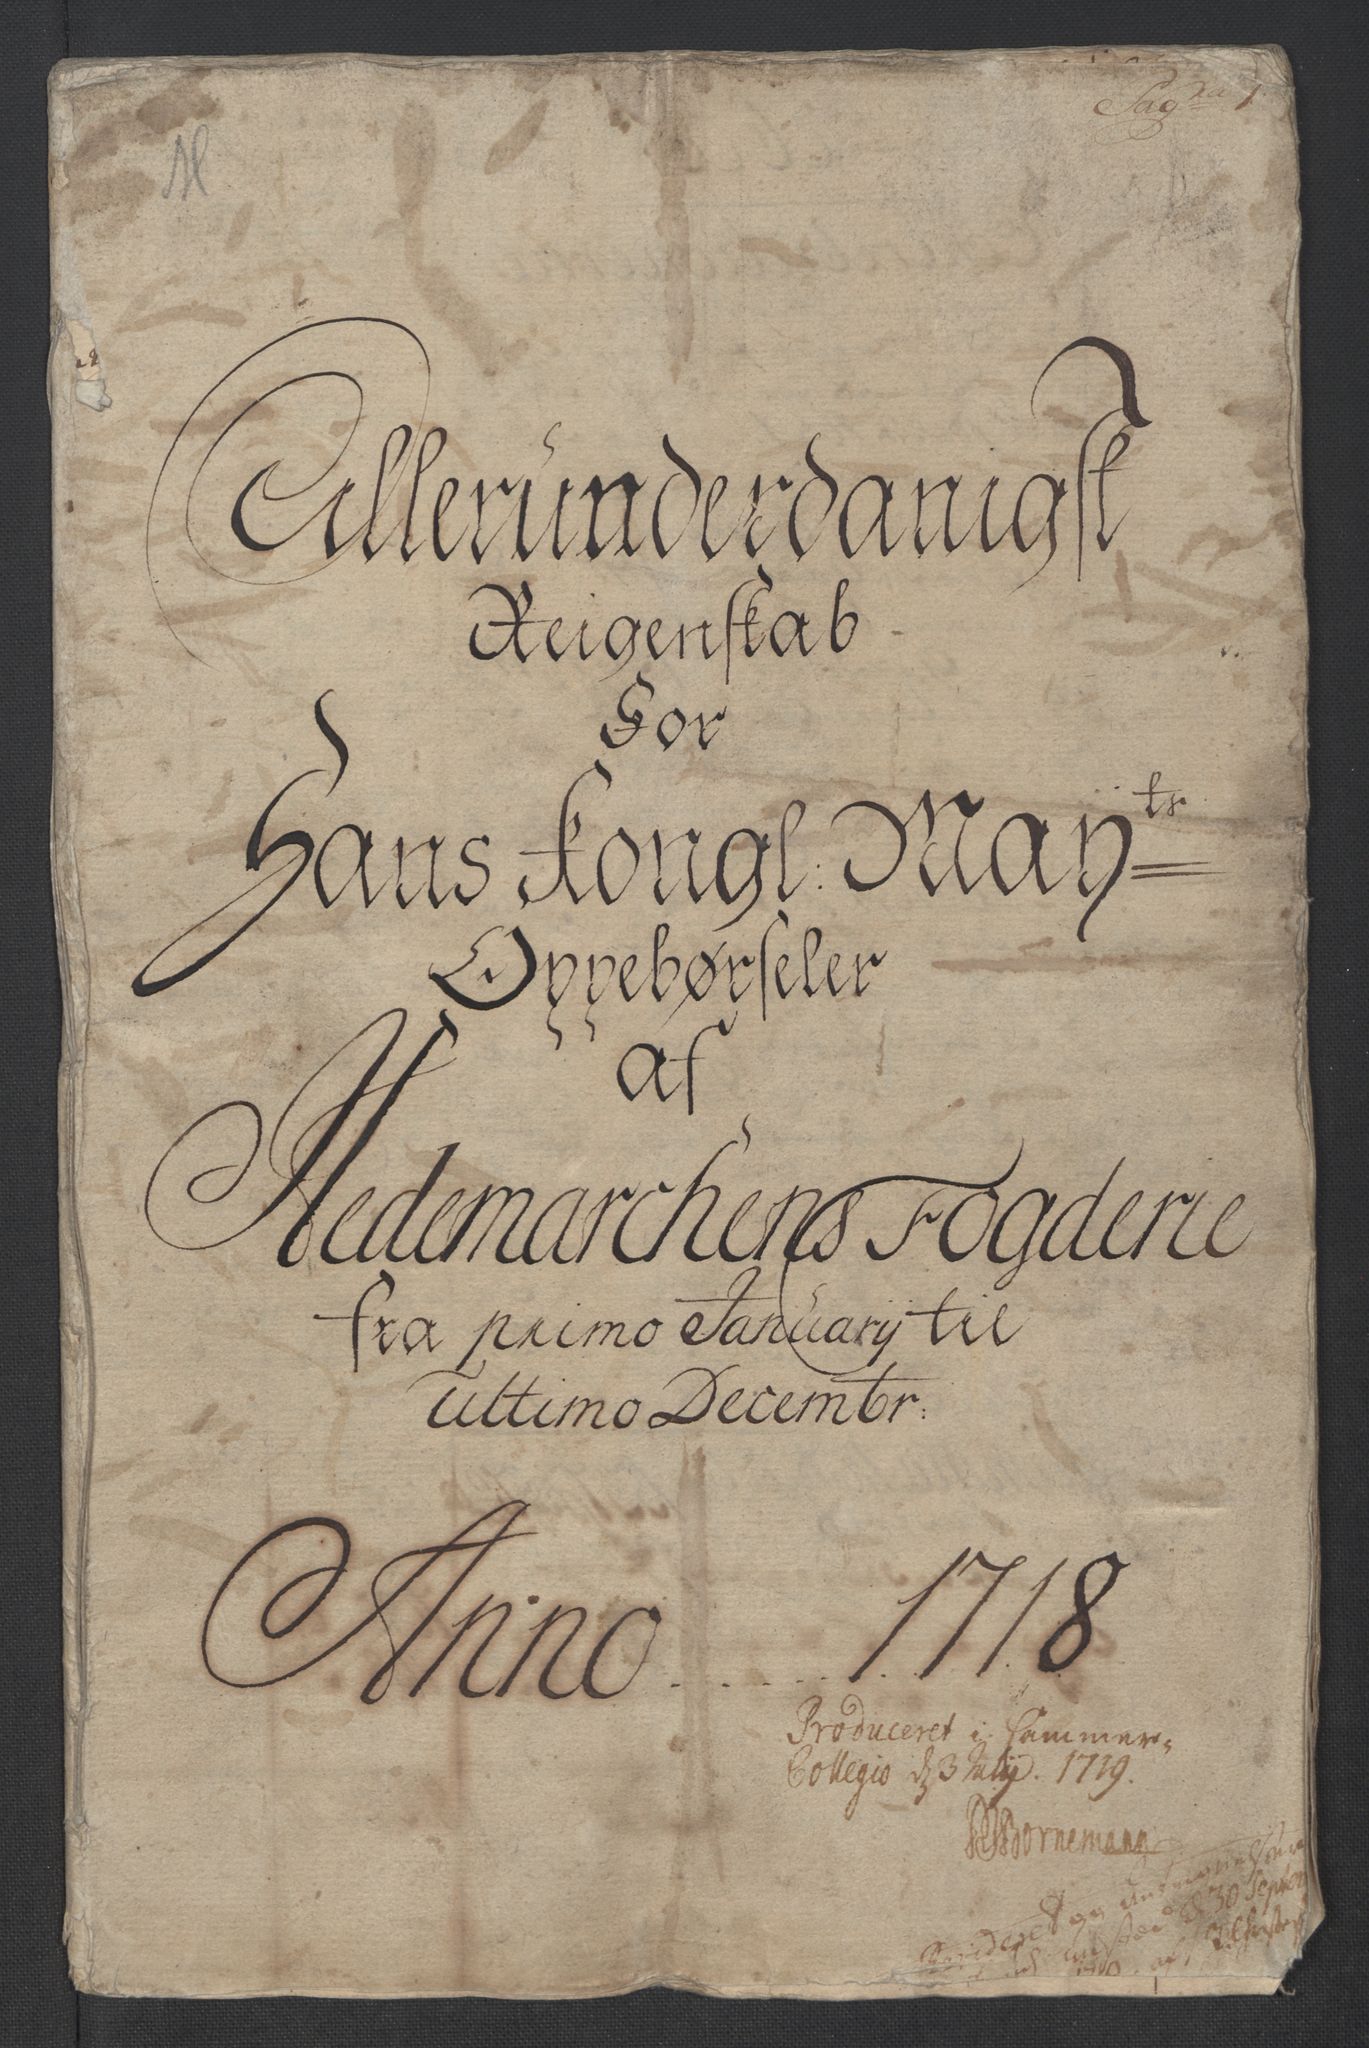 Pag 1
Alleründerdanigst
Reigenskab
For
Hans Kongl: Maÿ<sup>ts</sup>
Oppebørseler
af
Hedemarchens Fogderie
fra primo Januarij til
ultimo Decembr:
Anno 1718
Produceret i Cammer-
Collegio d 3 Julij. 1719.
Bornemann
Revideret og
30 Septem